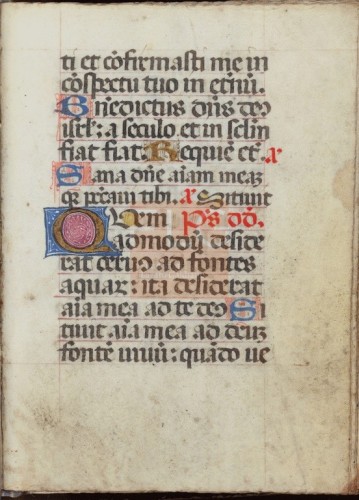 ti et cōfirmasti me in
cōspectu tuo in etnū.
Benedictus dn̄s deꝰ
isrl': a seculo et in seclm̄
fiat fiat. Requiē et. x
Sana dn̄e aīam meaꝫ
qr̄ pctāui tibi. x Sitiuit
Quem Ps dd̄.
admodū deside
rat ceruꝰ ad fontes
aquar: ita desiderat
aīa mea ad te deꝰ Si
tiuit aīa mea ad deuꝫ
fontē uiuū: quādo ue